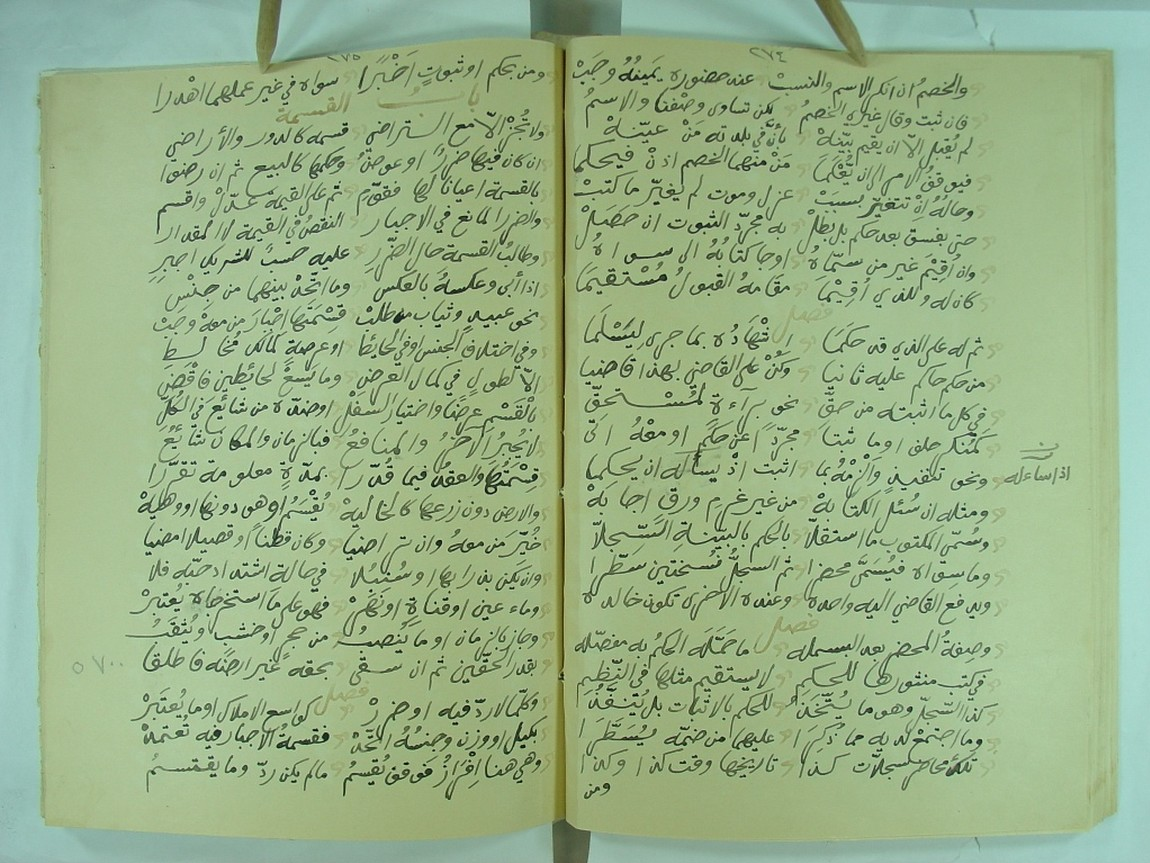 ٢٧٤
والخصم ان انكر الاسم والنسب عند حضوره يمينُهُ وجبْ
فان ثبت وقال غيره الخصمُ لكن تساوى وصفنا والاسمُ
لم يُقبل الّا ان يقيم بيّنهْ بأنّ في بلدته مَنْ عيّنهْ
فيوقفُ الامر الى ان يُعْلَمَا مَنْ منهما الخصم اذنْ فيحكما
وحالهُ إنْ تتغيّر بسببْ عزل وموت لم يُغيّر ما كتبْ
حتى بفسق بعد حكم بل بطلْ به مجرّد الثبوت ان حصلْ
وان أُقيْمَ غير من سمّاهُ اوجا كتابُهُ الى سواهُ
كان له وللذي أُقيْمَا مقامهُ القبولُ مُسْتقيمَا
فصل
ثم له على الذي قد حكمَا اشهادُهُ بما جرى ليَسْلَمَا
من حكم حاكم عليه ثانيا وكُنْ على القاضي بهذا قاضيا
في كل ما اثبته من حقّ نحو براءةٍ لمُسْتحقّ
كمُنكر حلف او ما ثبتا مجرّداً عن حكمٍ او معهُ اتى
ونحو تنفيذ وألزمْهُ بما اثبت اذْ يسأله ان يحكما
اذا ساءله
ومثله ان سُئل الكتابهْ من غير غرم ورق اجابهْ
وسُمّي المكتوب ما استقلّا بالحكم بالبيّنة السّجلّا
وما سواه فيُسَمّى محضرا ثم السجلُّ نُسختين سطّرا
ويدفع القاضي اليه واحده وعنده الاخرى تكون خالده
فصل
وصفةُ المحضر بعد البسمله ما حمّله الحكم به مفصّله
في كتب منثورها للحكمِ لا يستقيم مثلها في النّظمِ
كذا السّجلّ وهو ما يُتّخَذُ للحكم بالاثبات بل يُنَفَّذُ
وما اجتمع لديه مما ذُكِرَا عليهما من ضمّه يُسَطَّرَا
تلك محاضر سجلات كذا تاريخها وقت كذا وكذا
ومن
١٧٥
ومن بحكم او ثبوتٍ اخْبَرا سواه في غير عملهما اهْدرا
بابُ القسمة
ولا تُجُزْ الّا مع التراضي قسمة كالدور والأراضي
ان كان فيها ضررٌ او عوضُ وحكمها كالبيع ثم ان رضوا
بالقسمة اعياناً لها فقوّمِ ثم على القيمة عدّلْ واقسمِ
والضرر المانع في الاجبار النقصُ في القيمة لا المقدار
وطالبُ القسمة حال الضّررِ عليه حسبُ للشريك اجبرِ
اذا أبى وعكسهُ بالعكسِ وما اتّحدْ بينهما من جنْسِ
نحو عبيد وثياب من طلبْ قسمتها إجبارَ من معهْ وجبْ
وفي اختلاف الجنس او في الحائط او عرصة لمالك مخالطِ
الّا لطولٍ في كمال العرضِ وما يسعْ لحائطين فاقضِ
بالقَسْم عرضًا واختيار السفلْ او ضدّه من شائع في الكلّ
لا تُجبرُ الآخرُ والمنافعُ فبالزمان والمكان شائعُ
قسمتُها والعقدُ فيما قُدّرا بمدّةٍ معلومة تقرّرا
والارض دون زرعها كالخاليهْ يُقْسَمُ او هو دونها او وهيهْ
خُيّر من معهُ وان تراضيا وكان قطناً او قصيلا امضيا
وان يكن بذرا بها او سُنبُلا في حالة اشتد ادحبّه فلا
وماء عين او قناة او نهَرْ فهو على ما استخرجاه يُعتبرْ
وجاز بالزمان او ما يُنصبُ من حجر او خشب او يُثقبُ
بقدر الحقّين ثم ان سقى بحقه غير ارضه فاطلقا
٥٧٠٠
فصل
وكلّما لا ردّ فيه او ضررْ كواسع الاملاك او ما يُعتبَرْ
بكيل او وزن وجنسُهُ اتّحدْ فقسمةُ الاجبار فيه تُعتمدْ
وهي هنا إفرازُ فوقف يُقسمُ ما لم يكن ردّ وما يقتسمُ